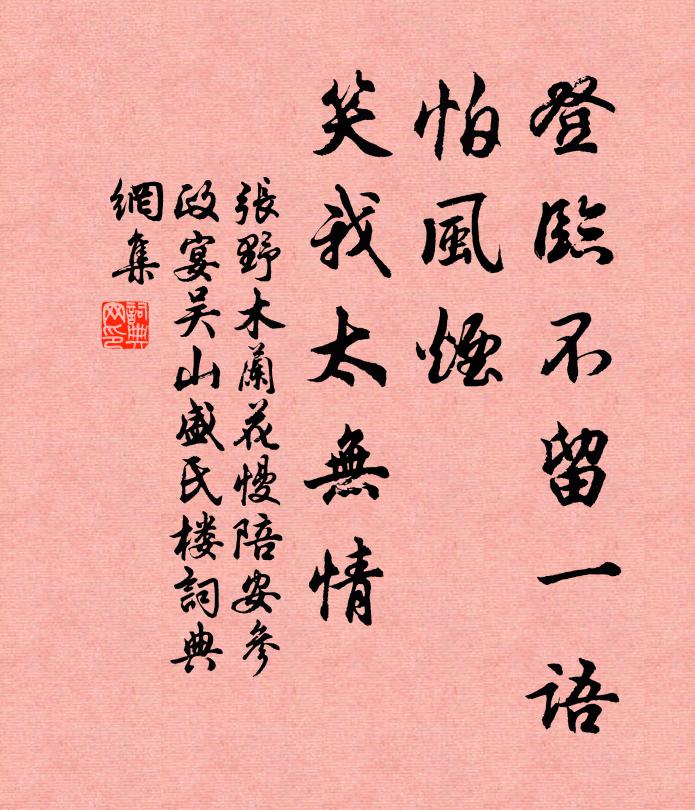 登臨不留一語
怕風煙
笑我太無情
張野木蘭花慢陪安參
政宴吴山盛氏楼詞典
網集
詞典網印